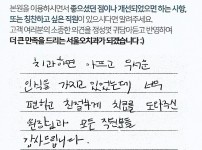 본원을 이용하시면서 좋으셨던 점이나 개선되었으면 하는 사항,
또는 칭찬하고 싶은 직원이 있으시다면 말씀해주세요.
고객 여러분의 소중한 의견을 정성껏 귀담아듣고 반영하여
더 큰 만족을 드리는 서울오치과가 되겠습니다 :)
치과하면 아프고 무서운
인식을 가지고 있었는데 너무
편하고 친절하게 치료를 도와주신
원장님과 모든 직원분들
감사드립니다.